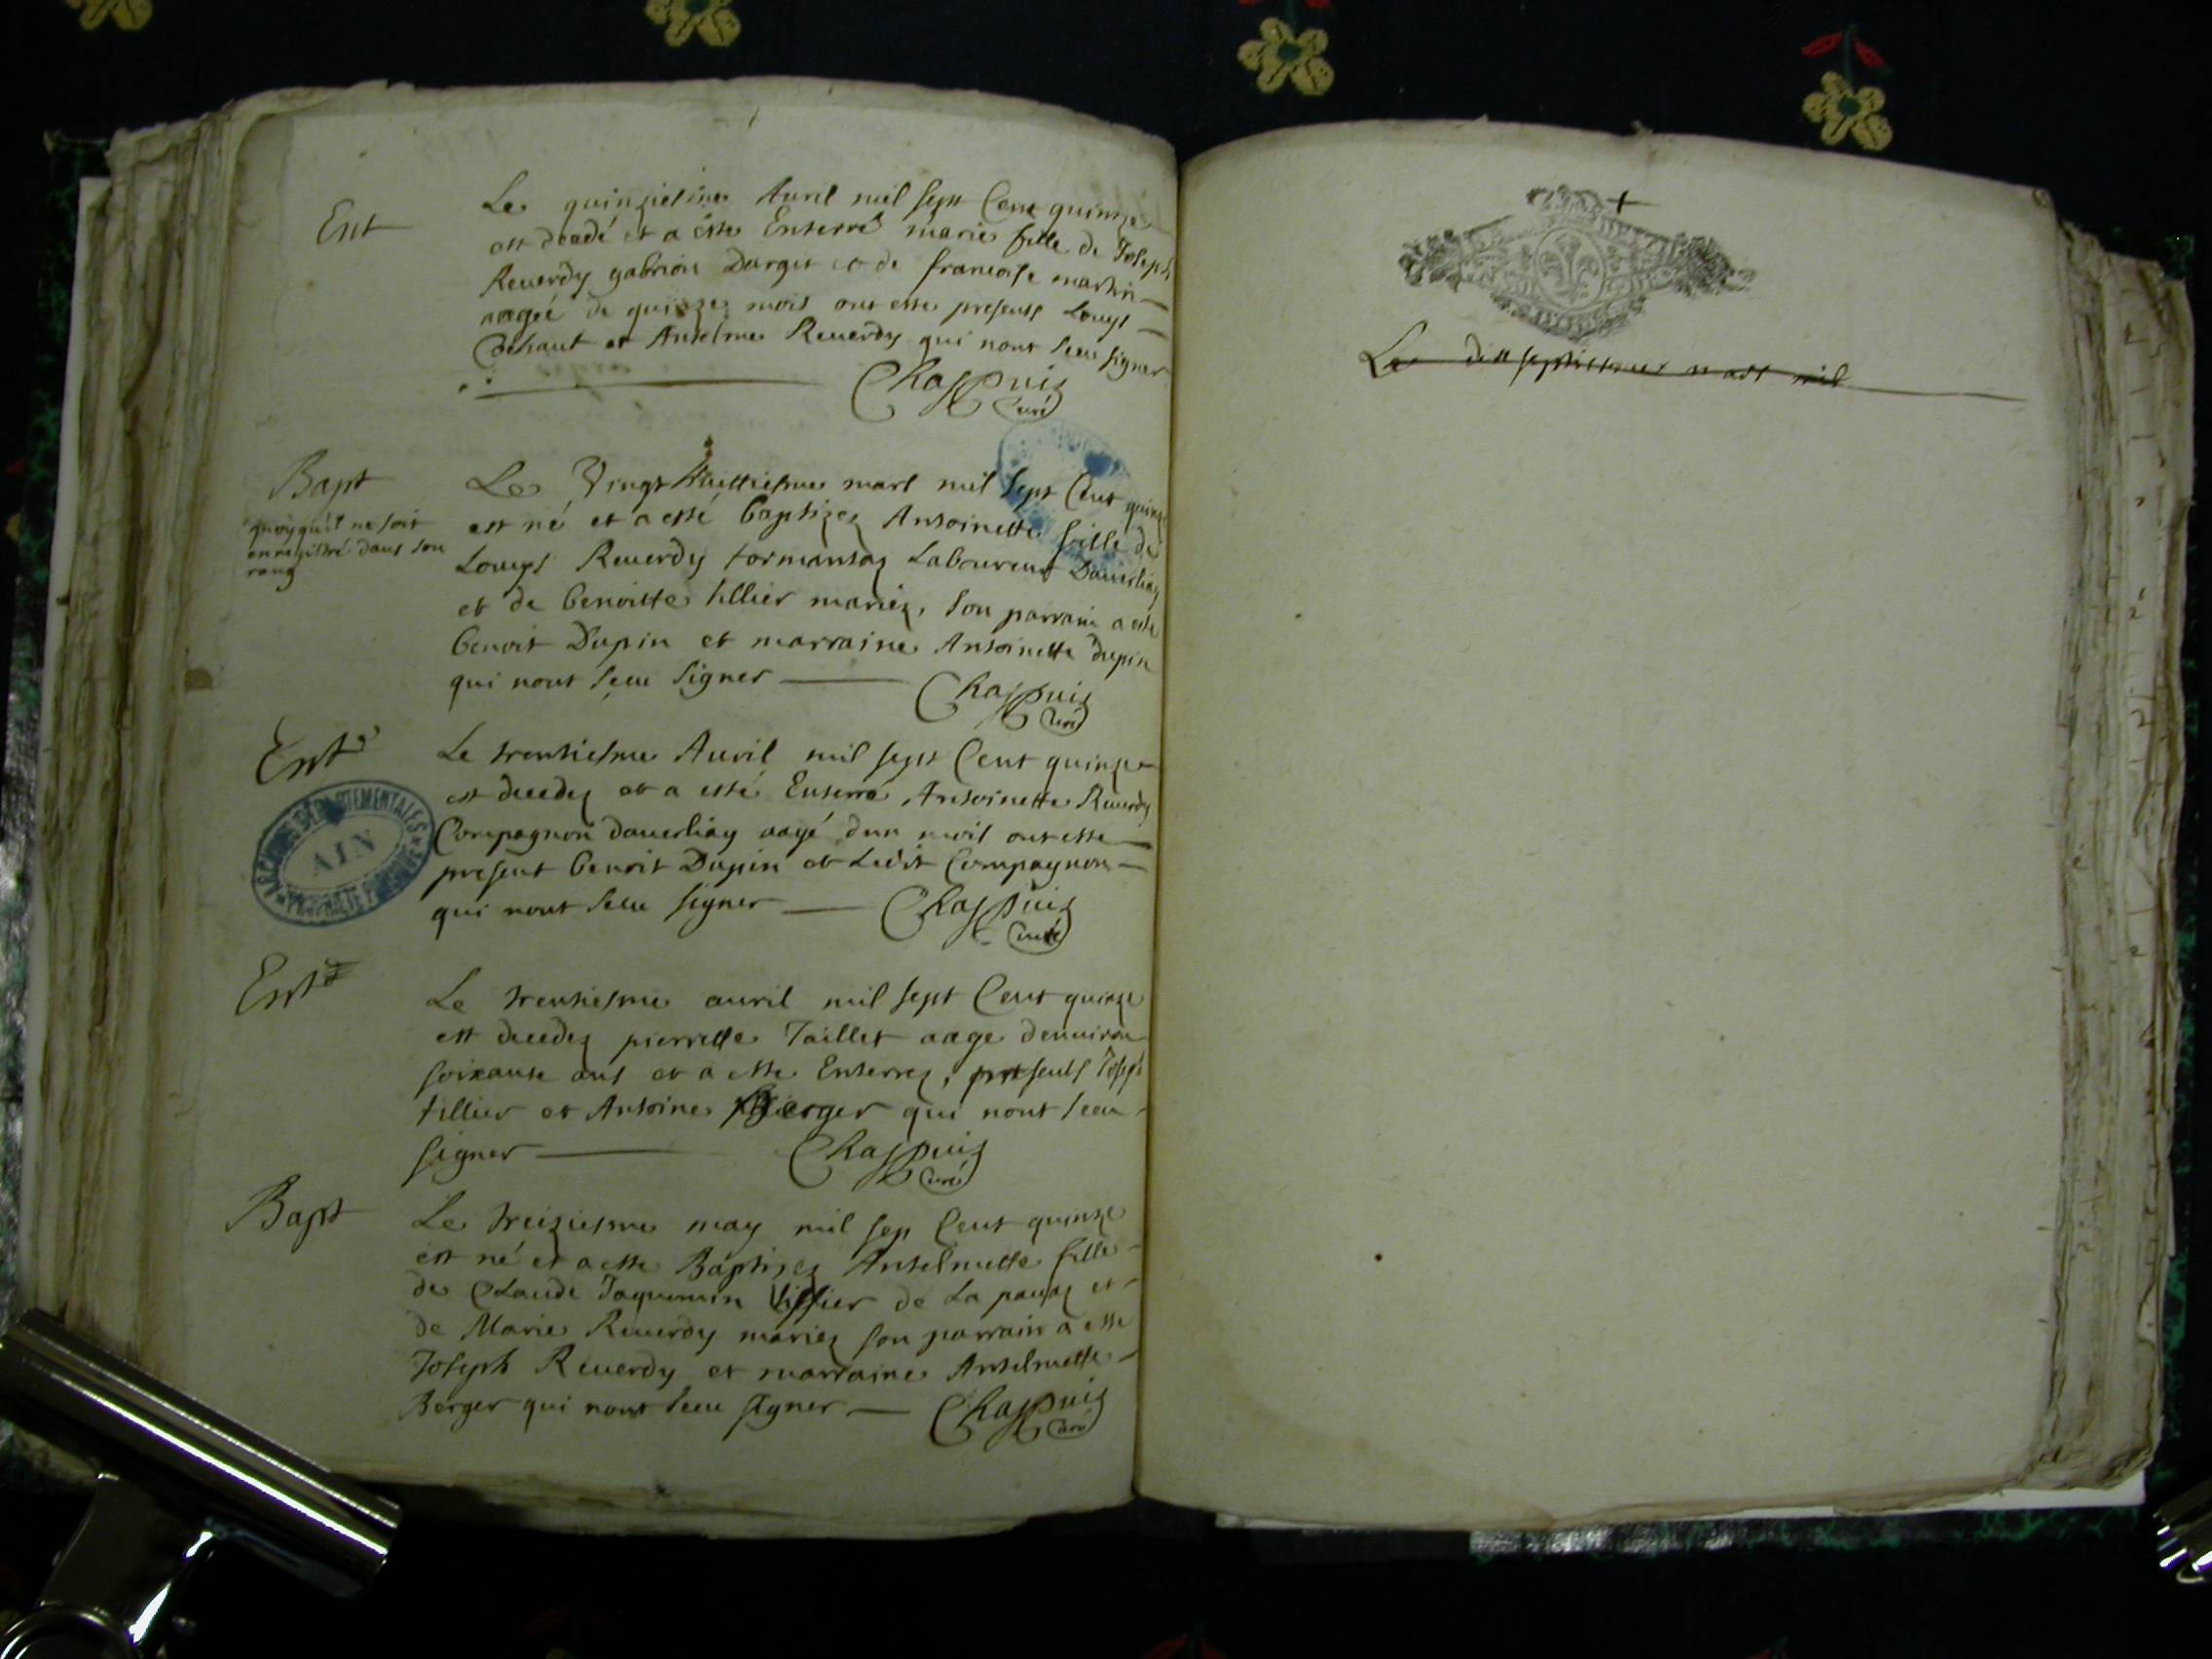 Ent
Le quinziesme Auril mil sept Cent quinze
est decedé et a esté Enterré marie fille de Joseph
Reuerdy gabrion Dargit et de francoise martin
aagée de quinze mois ont este presents Louys
Cochaut et Anselme Reuerdy qui nont sceu signer
Chappuis
Curé
Bapt
quoyquil ne soit
enregistré dans son
rang
Le Vingt huittiesme mars mil sept Cent quinze
est né et a esté baptizez Antoinette fille de
Louys Reuerdy Laboureur Dauerliaz
et de benoitte tillier mariez, son parrain a este
benoit Dupin et marraine Antoinette dupin
qui nont sceu signer
Chappuis
Curé
Ent
Le trentiesme Auril mil sept Cent quinze
est decedez et a esté Enterré Antoinette Reuerdy
Compagnon dauerliaz aagé dun mois ont este
present benoit Dupin et Ledit Compagnon
qui nont sceu signer
Chappuis
Curé
ARCHIVES DÉPARTEMENTALES
AIN
PROPRIETE PUBLIQUE
Ent
Le trentiesme auril mil sept Cent quinze
est decedez pierrette Taillet aage denuiron
soixante ans et a este Enterrez, presents Joseph
tillier et Antoine Berger qui nont sceu
signer
Chappuis
Curé
Bapt
Le treiziesme may mil sep Cent quinze
est né et a este Baptisez Anselmette fille
de Claude Jaquemin de La et
de Marie Reuerdy mariez son parrain a este
Joseph Reuerdy et marraine Anselmette
Berger qui nont sceu signer
Chappuis
Curé
Le dix septiesme mars mil